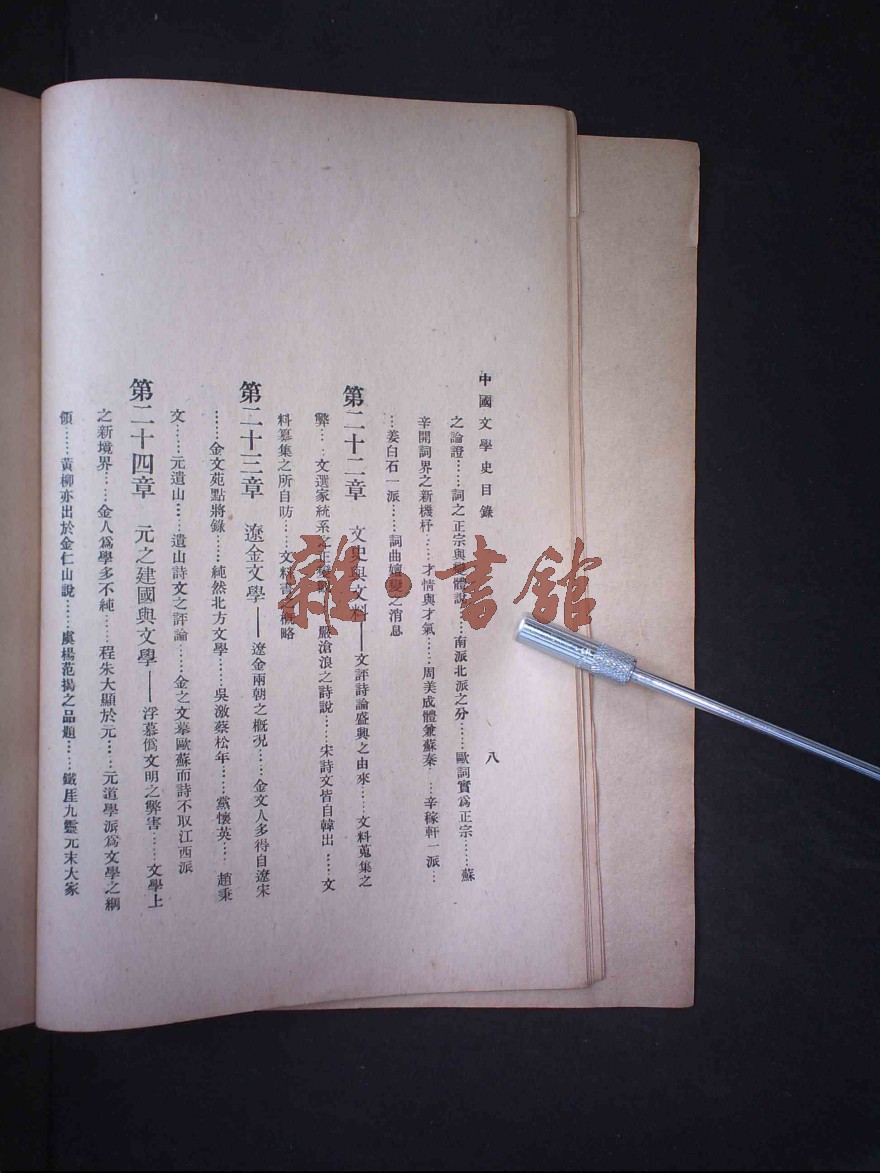 中國文學史目錄
八
之論證……詞之正宗與變體說……南派北派之分……歐詞實爲正宗……蘇
辛開詞界之新機杼……才情與才氣……周美成體兼蘇秦……辛稼軒一派…
…姜白石一派……詞曲嬗變之消息
第二十二章 文史與文料——文評詩論盛興之由來……文料蒐集之
弊……文選家統系之正變……嚴滄浪之詩說……宋詩文皆自韓出……文
料纂集之所自昉……文料書之概略
第二十三章 遼金文學——遼金兩朝之概况……金文人多得自遼宋
……金文苑點將錄……純然北方文學……吳激蔡松年……黨懷英……趙秉
文……元遺山……遺山詩文之評論……金之文摹歐蘇而詩不取江西派
第二十四章 元之建國與文學——浮慕僞文明之弊害……文學上
之新境界……金人爲學多不純……程朱大顯於元……元道學派爲文學之綱
領……黃柳亦出於金仁山說……虞楊范揭之品題……鐵厓九靈元末大家
雜·書館